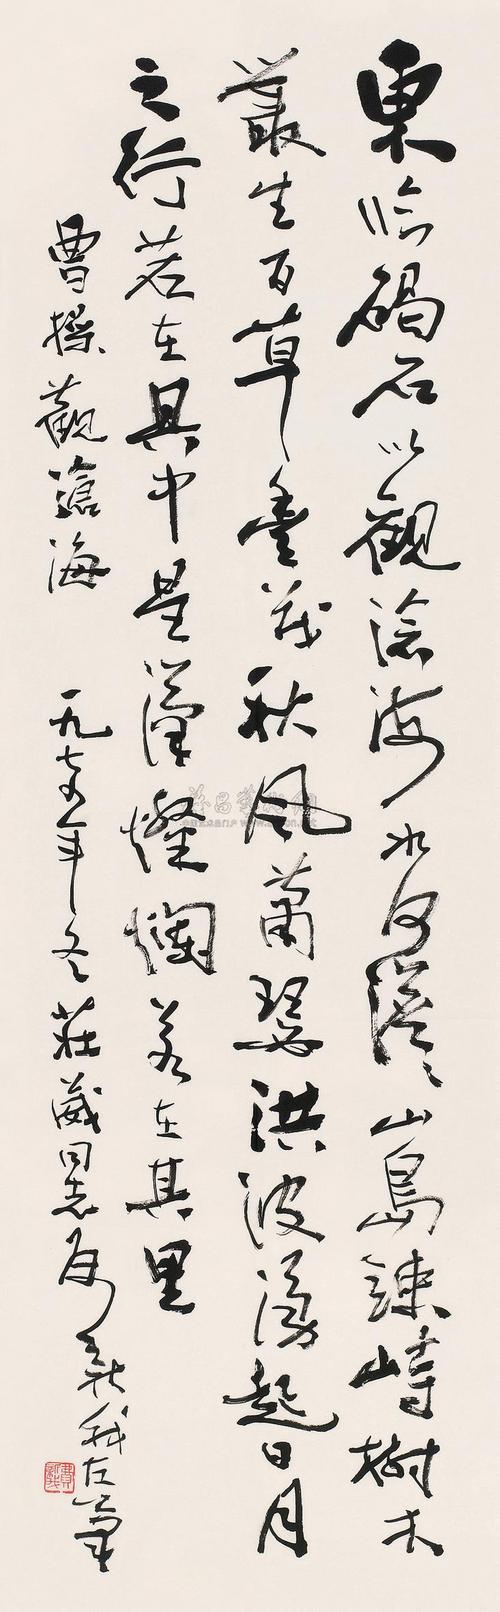 東臨碣石以觀滄海水何澹々山島竦峙樹木
叢生百草豐茂秋風蕭瑟洪波湧起日月
之行若在其中星漢燦爛若在其里
曹操觀滄海
一九七五年冬莊葳同志属 新我左筆